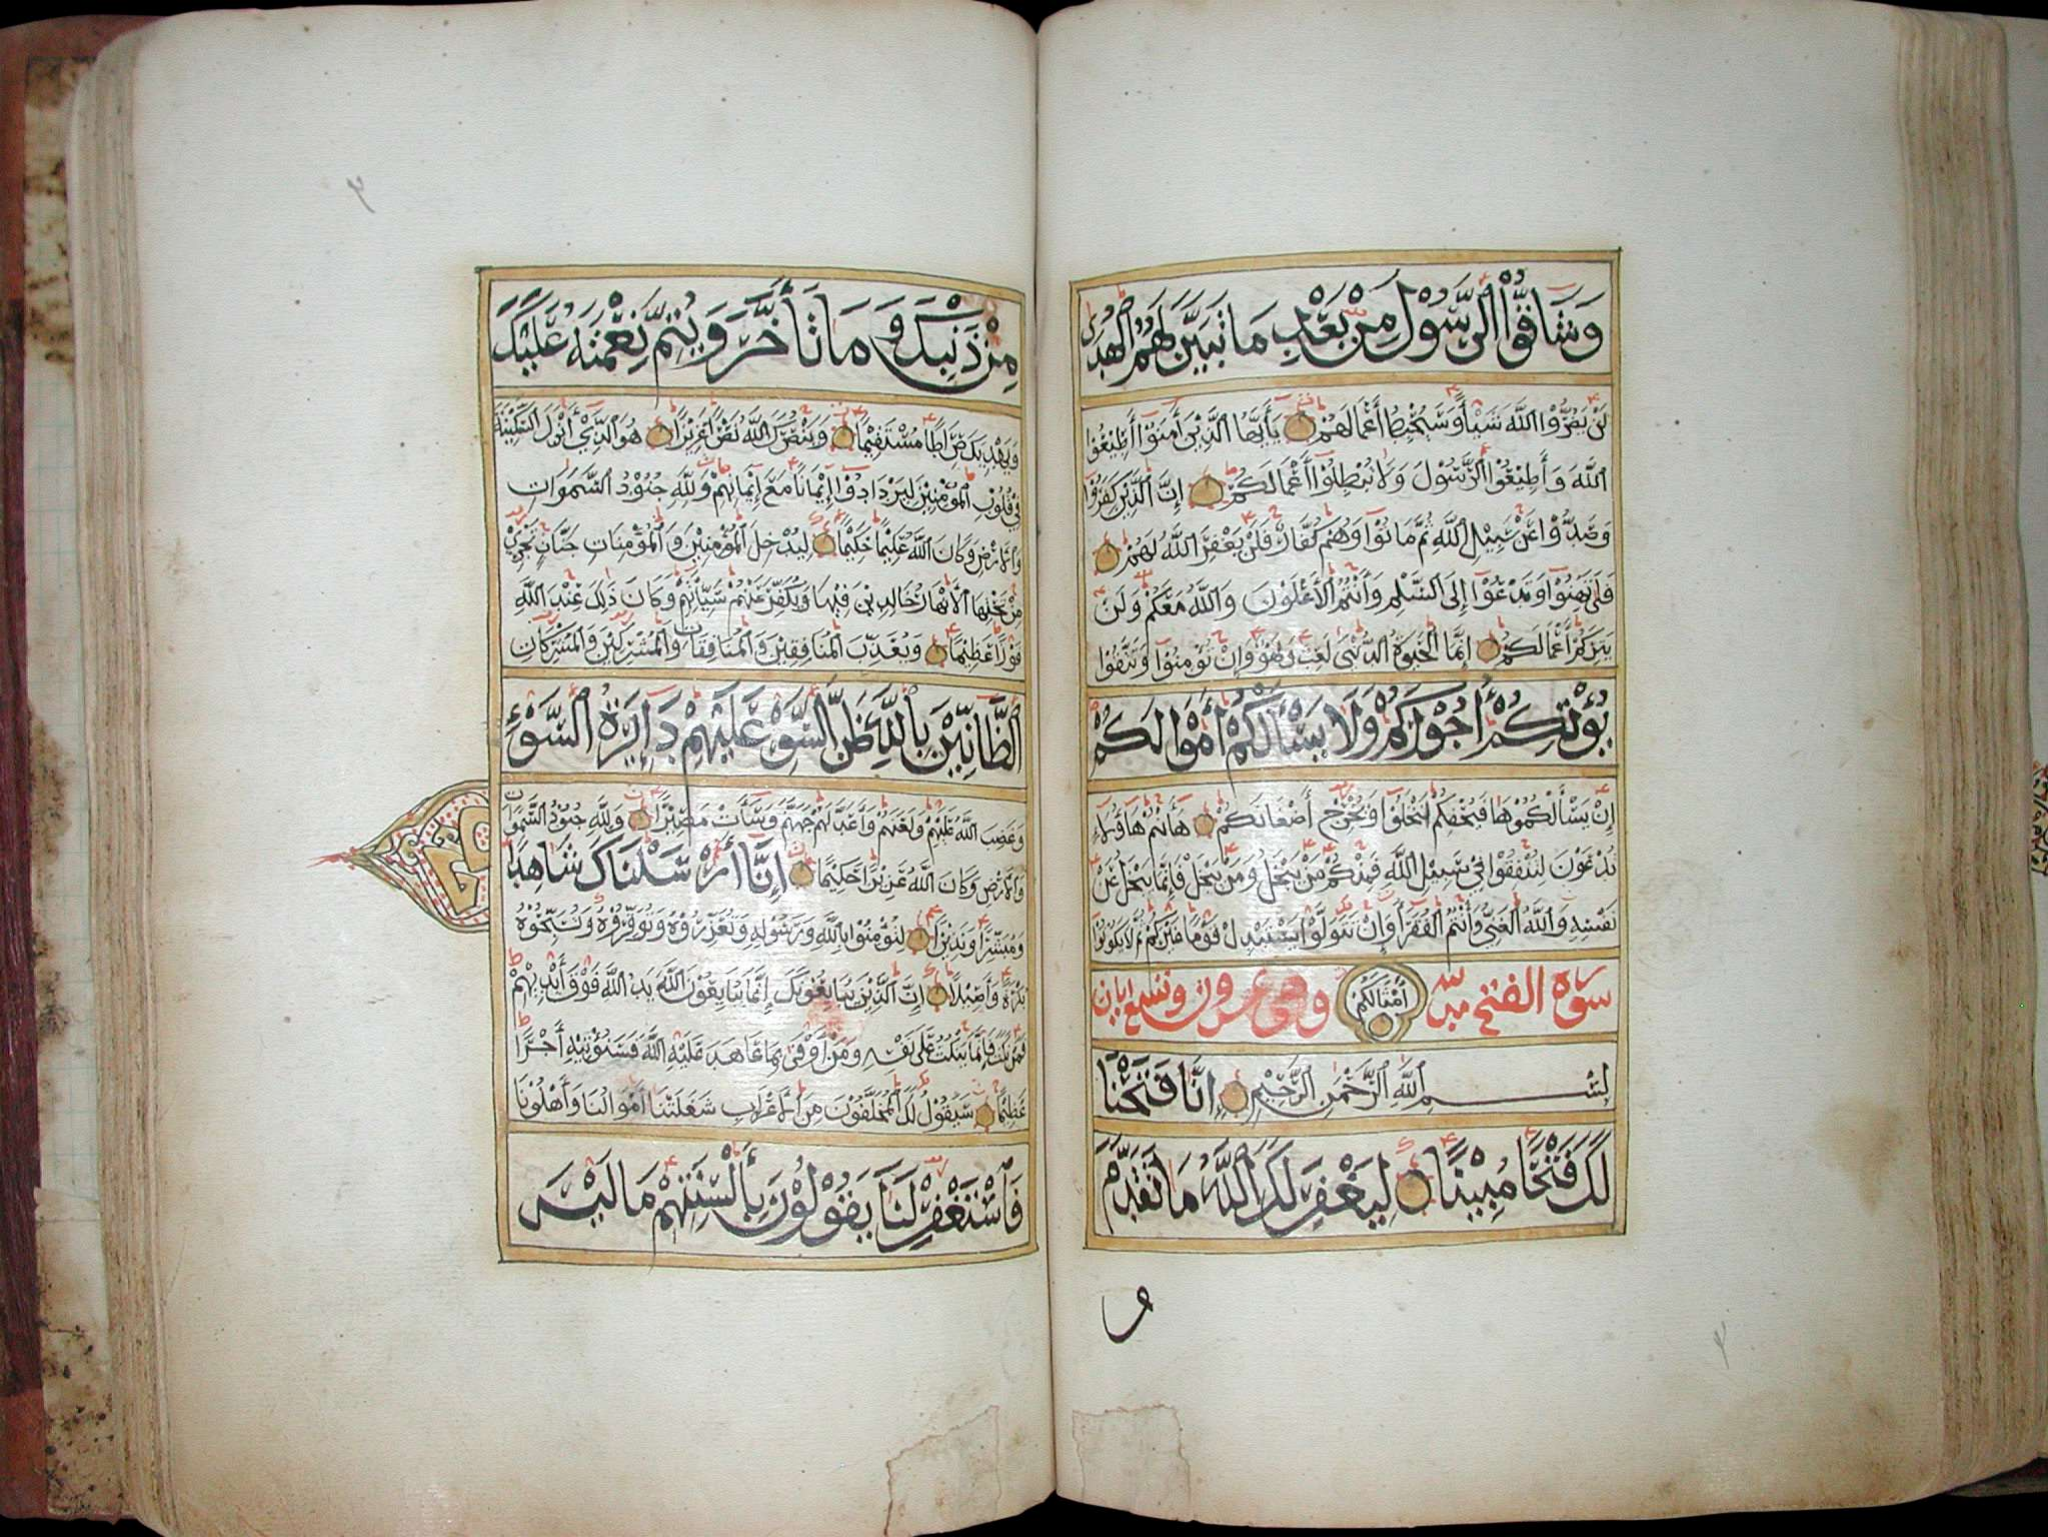 وَشَاقُّوا الرَّسُوْلَ مِنْ بَعْدِ مَا تَبَيَّنَ لَهُمُ الْهُدٰى
لَنْ يَضُرُّوا اللَّهَ شَيْئًا وَسَيُحْبِطُ أَعْمَالَهُمْ يَأَيُّهَا الَّذِيْنَ أَمَنُوْا أَطِيْعُوا
اللَّهَ وَأَطِيْعُوا الرَّسُوْلَ وَلَا تُبْطِلُوْا أَعْمَالَكُمْ إِنَّ الَّذِيْنَ كَفَرُوْا
وَصَدُّوْا عَنْ سَبِيْلِ اللَّهِ ثُمَّ مَاتُوْا وَهُمْ كُفَّارٌ فَلَنْ يَغْفِرَ اللَّهُ لَهُمْ
فَلَا تَهِنُوْا وَتَدْعُوْا إِلَى السَّلْمِ وَأَنْتُمُ الْأَعْلَوْنَ وَاللَّهُ مَعَكُمْ وَلَنْ
يَتِرَكُمْ أَعْمَالَكُمْ إِنَّمَا الْحَيَوةُ الدُّنْيَا لَعِبٌ وَلَهْوٌ وَإِنْ تُؤْمِنُوْا وَتَتَّقُوْا
يُؤْتِكُمْ أُجُوْرَكُمْ وَلَا يَسْأَلْكُمْ أَمْوَالَكُمْ
إِنْ يَسْأَلْكُمُوْهَا فَيُحْفِكُمْ تَبْخَلُوْا وَيُخْرِجْ أَضْغَانَكُمْ هَاأَنْتُمْ هَاؤُلَاءِ
تُدْعَوْنَ لِتُنْفِقُوْا فِيْ سَبِيْلِ اللَّهِ فَمِنْكُمْ مَنْ يَبْخَلُ وَمَنْ يَبْخَلْ فَإِنَّمَا يَبْخَلُ عَنْ
نَفْسِهِ وَاللَّهُ الْغَنِيُّ وَأَنْتُمُ الْفُقَرَاءُ وَإِنْ تَتَوَلَّوْا يَسْتَبْدِلْ قَوْمًا غَيْرَكُمْ ثُمَّ لَا يَكُوْنُوْا
سورة الفتح مدنية أَمْثَالَكُمْ وهي عشرون وتسع ايات
بِسْمِ اللَّهِ الرَّحْمٰنِ الرَّحِيْمِ إِنَّا فَتَحْنَا
لَكَ فَتْحًا مُبِيْنًا لِيَغْفِرَ لَكَ اللَّهُ مَا تَقَدَّمَ
مِنْ ذَنْبِكَ وَمَا تَأَخَّرَ وَيُتِمَّ نِعْمَتَهُ عَلَيْكَ
وَيَهْدِيَكَ صِرَاطًا مُسْتَقِيْمًا وَيَنْصُرَكَ اللَّهُ نَصْرًا عَزِيْزًا هُوَ الَّذِيْ أَنْزَلَ السَّكِيْنَةَ
فِيْ قُلُوْبِ الْمُؤْمِنِيْنَ لِيَزْدَادُوْا إِيْمَانًا مَعَ إِيْمَانِهِمْ وَلِلَّهِ جُنُوْدُ السَّمَوَاتِ
وَالْأَرْضِ وَكَانَ اللَّهُ عَلِيْمًا حَكِيْمًا لِيُدْخِلَ الْمُؤْمِنِيْنَ وَالْمُؤْمِنَاتِ جَنَّاتٍ تَجْرِيْ
مِنْ تَحْتِهَا الْأَنْهَارُ خَالِدِيْنَ فِيْهَا وَيُكَفِّرَ عَنْهُمْ سَيِّأَتِهِمْ وَكَانَ ذَلِكَ عِنْدَ اللَّهِ
فَوْزًا عَظِيْمًا وَيُعَذِّبَ الْمُنَافِقِيْنَ وَالْمُنَافِقَاتِ وَالْمُشْرِكِيْنَ وَالْمُشْرِكَاتِ
الظَّانِّيْنَ بِاللَّهِ ظَنَّ السَّوْءِ عَلَيْهِمْ دَائِرَةُ السَّوْءِ
وَغَضِبَ اللَّهُ عَلَيْهِمْ وَلَعَنَهُمْ وَأَعَدَّ لَهُمْ جَهَنَّمَ وَسَاءَتْ مَصِيْرًا وَلِلَّهِ جُنُوْدُ السَّمَوَاتِ
وَالْأَرْضِ وَكَانَ اللَّهُ عَزِيْزًا حَكِيْمًا إِنَّا أَرْسَلْنَاكَ شَاهِدًا
وَمُبَشِّرًا وَنَذِيْرًا لِتُؤْمِنُوْا بِاللَّهِ وَرَسُوْلِهِ وَتُعَزِّرُوْهُ وَتُوَقِّرُوْهُ وَتُسَبِّحُوْهُ
بُكْرَةً وَأَصِيْلًا إِنَّ الَّذِيْنَ يُبَايِعُوْنَكَ إِنَّمَا يُبَايِعُوْنَ اللَّهَ يَدُ اللَّهِ فَوْقَ أَيْدِيْهِمْ
فَمَنْ نَكَثَ فَإِنَّمَا يَنْكُثُ عَلَى نَفْسِهِ وَمَنْ أَوْفَى بِمَا عَاهَدَ عَلَيْهُ اللَّهَ فَسَنُؤْتِيْهِ أَجْرًا
عَظِيْمًا سَيَقُوْلُ لَكَ الْمُخَلَّفُوْنَ مِنَ الْأَعْرَابِ شَغَلَتْنَا أَمْوَالُنَا وَأَهْلُوْنَا
فَاسْتَغْفِرْ لَنَا يَقُوْلُوْنَ بِأَلْسِنَتِهِمْ مَا لَيْسَ